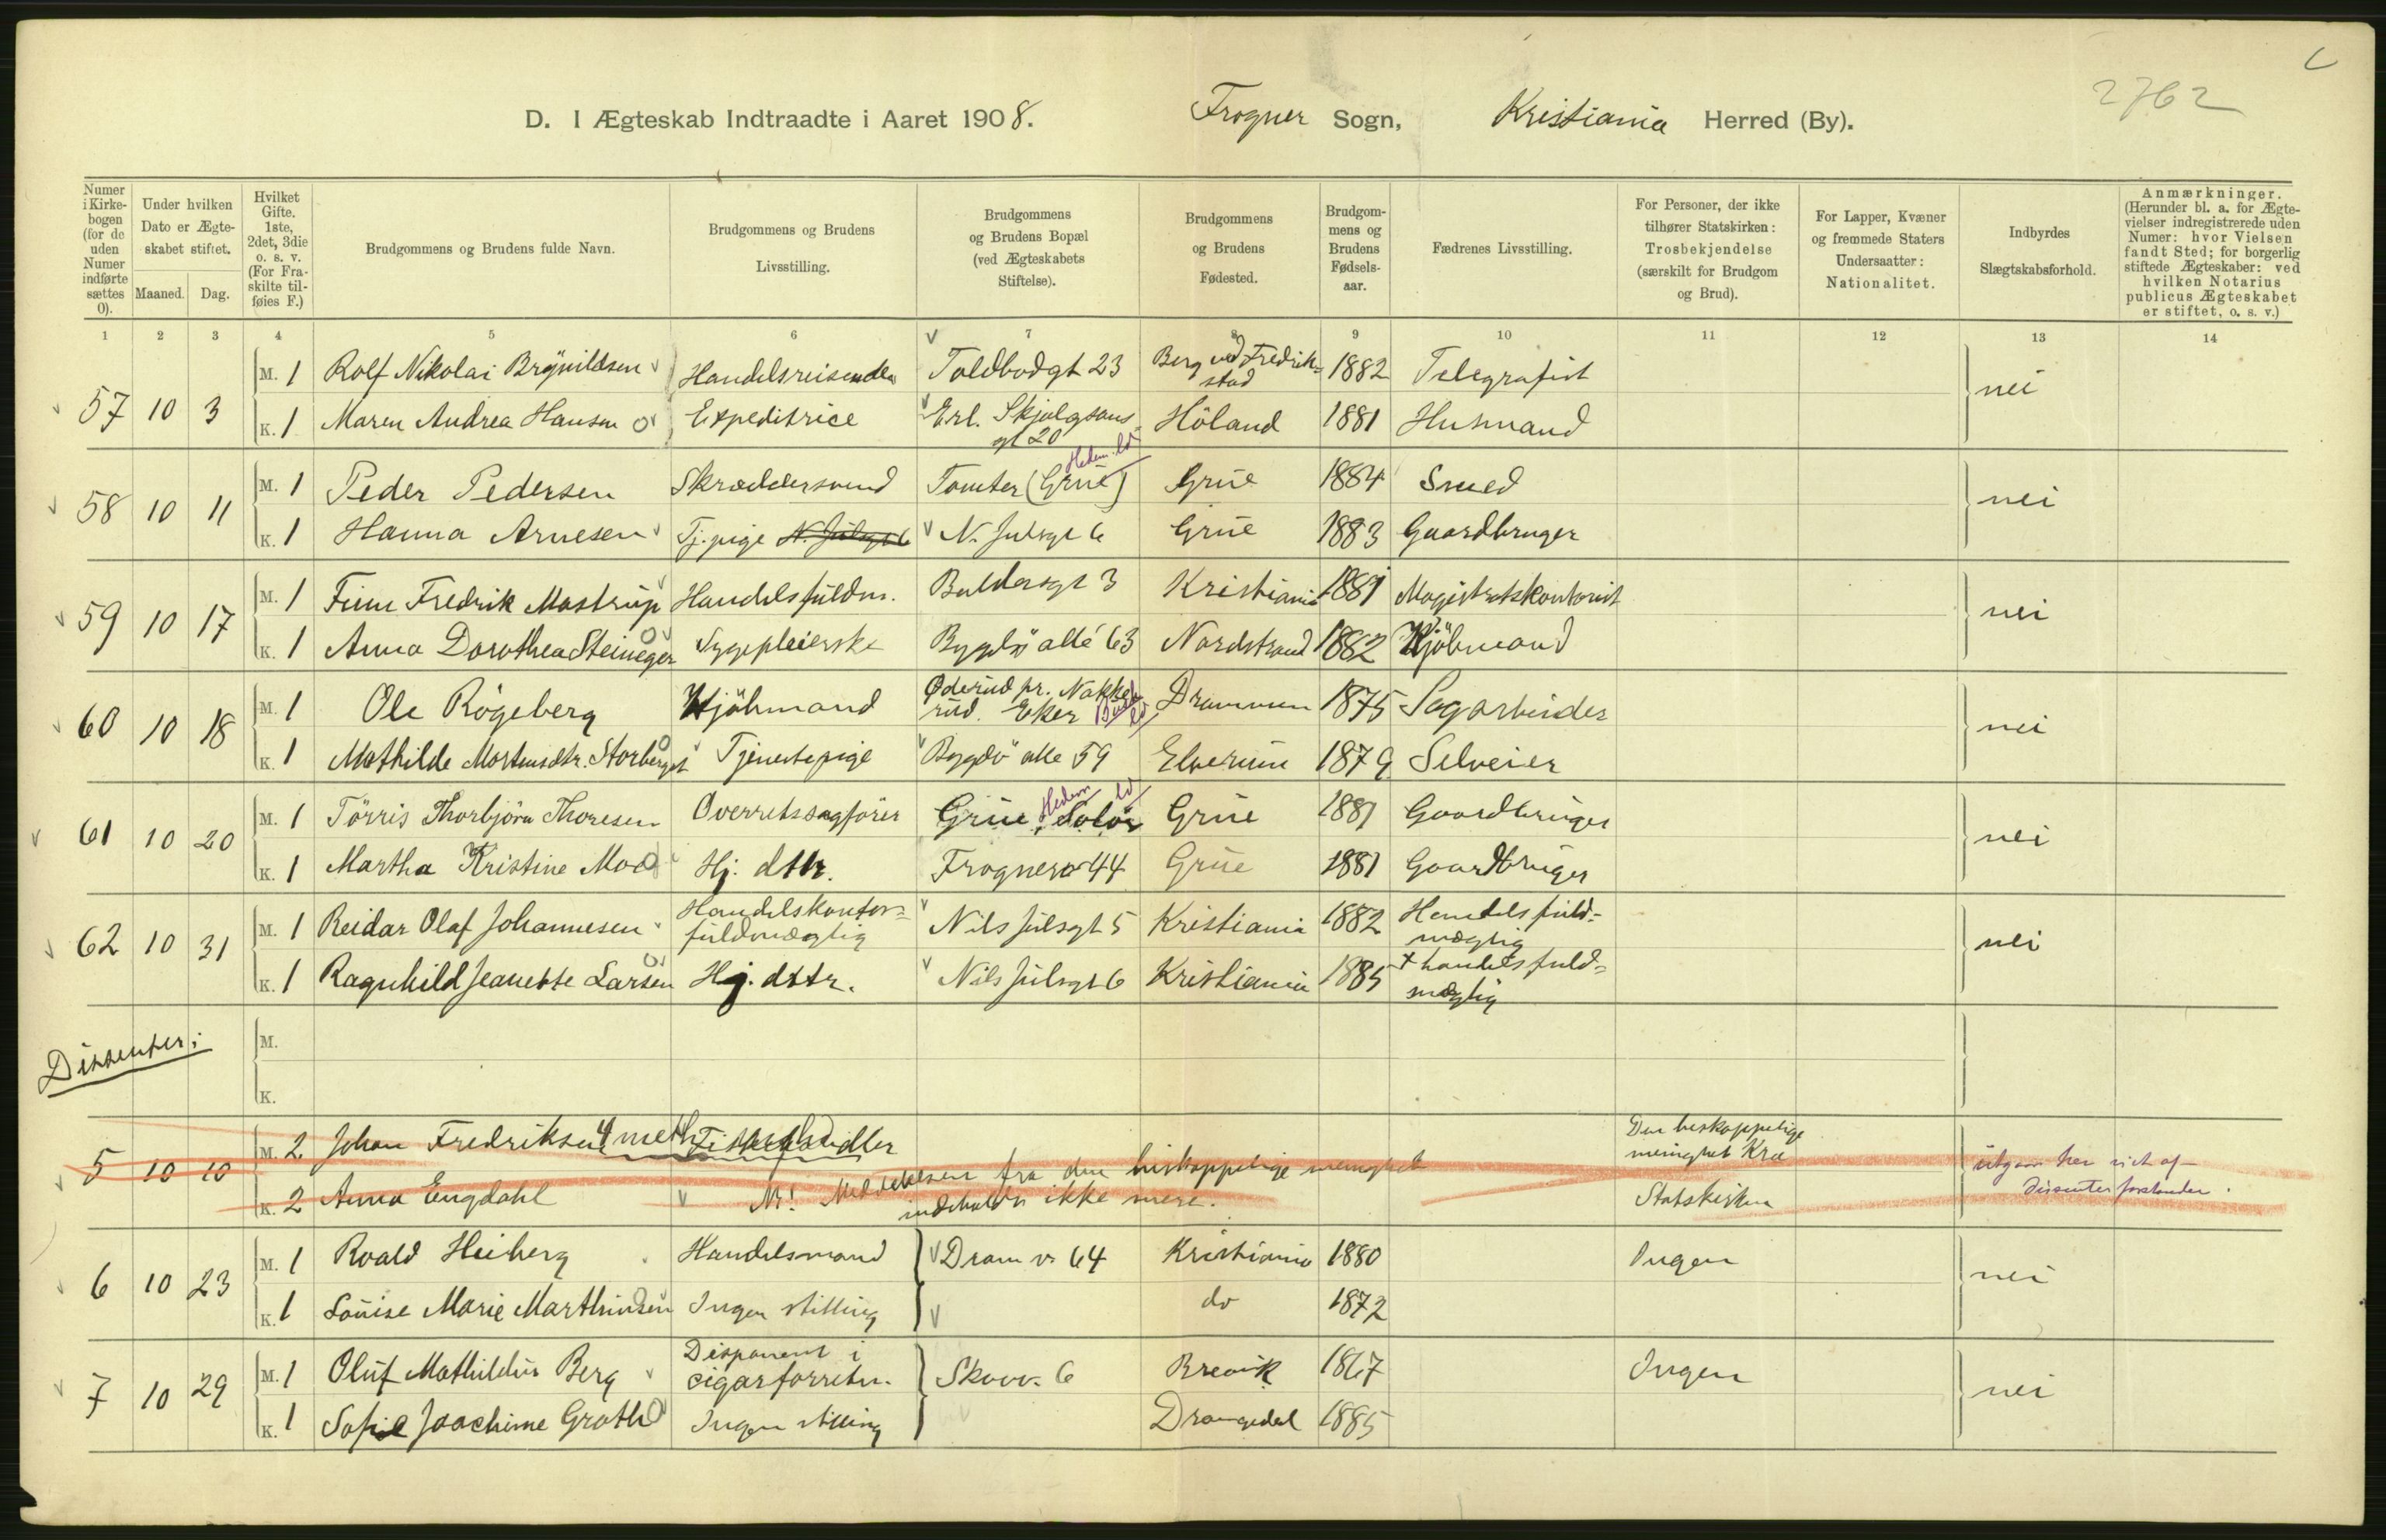 2762
D. I Ægteskab Indtraadte i Aaret 1908. Frogner Sogn, Kristiania Herred (By).
Numer i Kirkebogen (for de uden Numer indførte sættes 0).
Under hvilken Dato er Ægteskabet stiftet.
Maaned. Dag.
Hvilket Gifte. 1ste, 2det, 3die o. s. v. (For Fraskilte tilføies F.)
Brudgommens og Brudens fulde Navn.
Brudgommens og Brudens Livsstilling.
Brudgommens og Brudens Bopæl (ved Ægteskabets Stiftelse).
Brudgommens og Brudens Fødested.
Brudgommens og Brudens Fødselsaar.
Fædrenes Livsstilling.
For Personer, der ikke tilhører Statskirken: Trosbekjendelse (særskilt for Brudgom og Brud).
For Lapper, Kvæner og fremmede Staters Undersaatter: Nationalitet.
Indbyrdes Slægtskabsforhold.
Anmærkninger. (Herunder bl. a. for Ægtevielser indregistrerede uden Numer: hvor Vielsen fandt Sted; for borgerlig stiftede Ægteskaber: ved hvilken Notarius publicus Ægteskabet er stiftet, o. s. v.)
1 2 3 4 5 6 7 8 9 10 11 12 13 14
57 10 3 M. 1 Rolf Nikolai Brynildsen Handelsreisende Toldbodgt 23 Berg ved Fredrikstad 1882 Telegrafist nei
K. 1 Maren Andrea Hansen Expeditrice Erl. Skjalgsøns gt 20 Höland 1881 Husmand
58 10 11 M. 1 Peder Pedersen Skræddersvend Tomter (Grue) Hedm. Grue 1884 Smed nei
K. 1 Hanna Arnesen Tj. pige N. Julsgt 6 N. Julsgt 6 Grue 1883 Gaardbruger
59 10 17 M. 1 Finn Fredrik Mastrup Handelsfuldm. Baldersgt 3 Kristiania 1881 Magistratskontorist nei
K. 1 Anna Dorothea Steineger Sygepleierske Bygdö allé 63 Nordstrand 1882 Kjöbmand
60 10 18 M. 1 Ole Rögeberg Kjöbmand Øderud pr. Nakkerud. Eker Busk. Drammen 1875 Sagarbeider nei
K. 1 Mathilde Mortensdtr. Storberget Tjenestepige Bygdö alle 59 Elverum 1879 Selveier
61 10 20 M. 1 Törris Thorbjörn Thoresen Overretssagförer Grue, Solör Hedm. Grue 1881 Gaardbruger nei
K. 1 Martha Kristine Moe Hj. dttr. Frognerv 44 Grue 1881 Gaardbruger
62 10 31 M. 1 Reidar Olaf Johannesen Handelskontorfuldmægtig Nils Julsgt 5 Kristiania 1882 Handelsfuldmægtig nei
K. 1 Ragnhild Jeanette Larsen Hj. dttr. Nils Julsgt 6 Kristiania 1885 + handelsfuldmægtig
Dissenter:
M.
K.
5 10 10 M. 2 Johan Fredriksen Fiskehandler Den biskoppelige menighet Kra
K. 2 Anna Engdahl N! Meddelelsen fra den biskoppelige menighet indeholder ikke mere. Statskirken
6 10 23 M. 1 Roald Heiberg Handelsmand Dram v. 64 Kristiania 1880 Ingen nei
K. 1 Louise Marie Marthinsen Ingen stilling do 1872
7 10 29 M. 1 Oluf Mathildus Berg Disponent i cigarforretn. Skovv. 6 Brevik 1867 Ingen nei
K. 1 Sofie Joachime Groth Ingen stilling Drangedal 1885